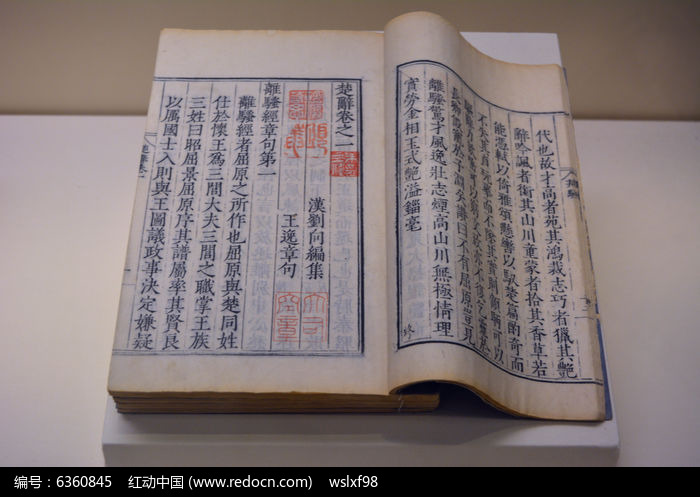 代也故才高者苑其鴻裁志巧者獵其艷
辭吟諷者銜其山川童蒙者拾其香草若
能憑軾以倚雅頌懸轡以馭楚篇酌奇而
不失其真翫華而不墜其實則顧盼可以
驅辭力欬唾可以窮文致亦不復乞靈於
長卿假寵於子淵矣贊曰不有屈原豈見
離騷驚才風逸壯志煙高山川無極情理
實勞金相玉式艷溢錙毫
楚辭卷之一
漢劉向編集
王逸章句
離騷經章句第一
離騷經者屈原之所作也屈原與楚同姓
仕於懷王爲三閭大夫三閭之職掌王族
三姓曰昭屈景屈原序其譜屬率其賢良
以厲國士入則與王圖議政事決定嫌疑
编号：6360845 红动中国 (www.redocn.com) wslxf98